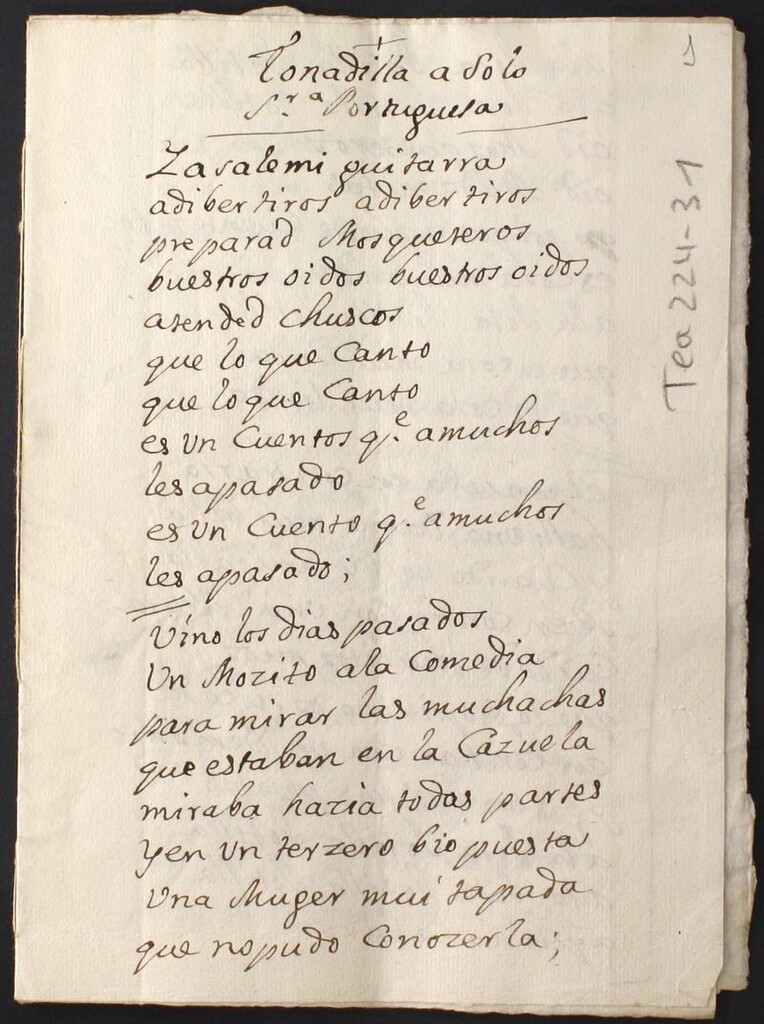 Tonadilla a Solo
S.ra Portuguesa
Zasalemi guitarra
adibertiros adibertiros
preparad Mosqueteros
buestros oidos buestros oidos
atended chuscos
que lo que Canto
que lo que Canto
es Un Cuentos q.e amuchos
les apasado
es Un Cuento q.e amuchos
les apasado;
Vino los dias pasados
Un Mozito ala Comedia
para mirar las muchachas
que estaban en la Cazuela
miraba hazia todas partes
yen Un terzero bio puesta
Una Muger mui tapada
que nopudo Conozerla;
1
Tea 224-31